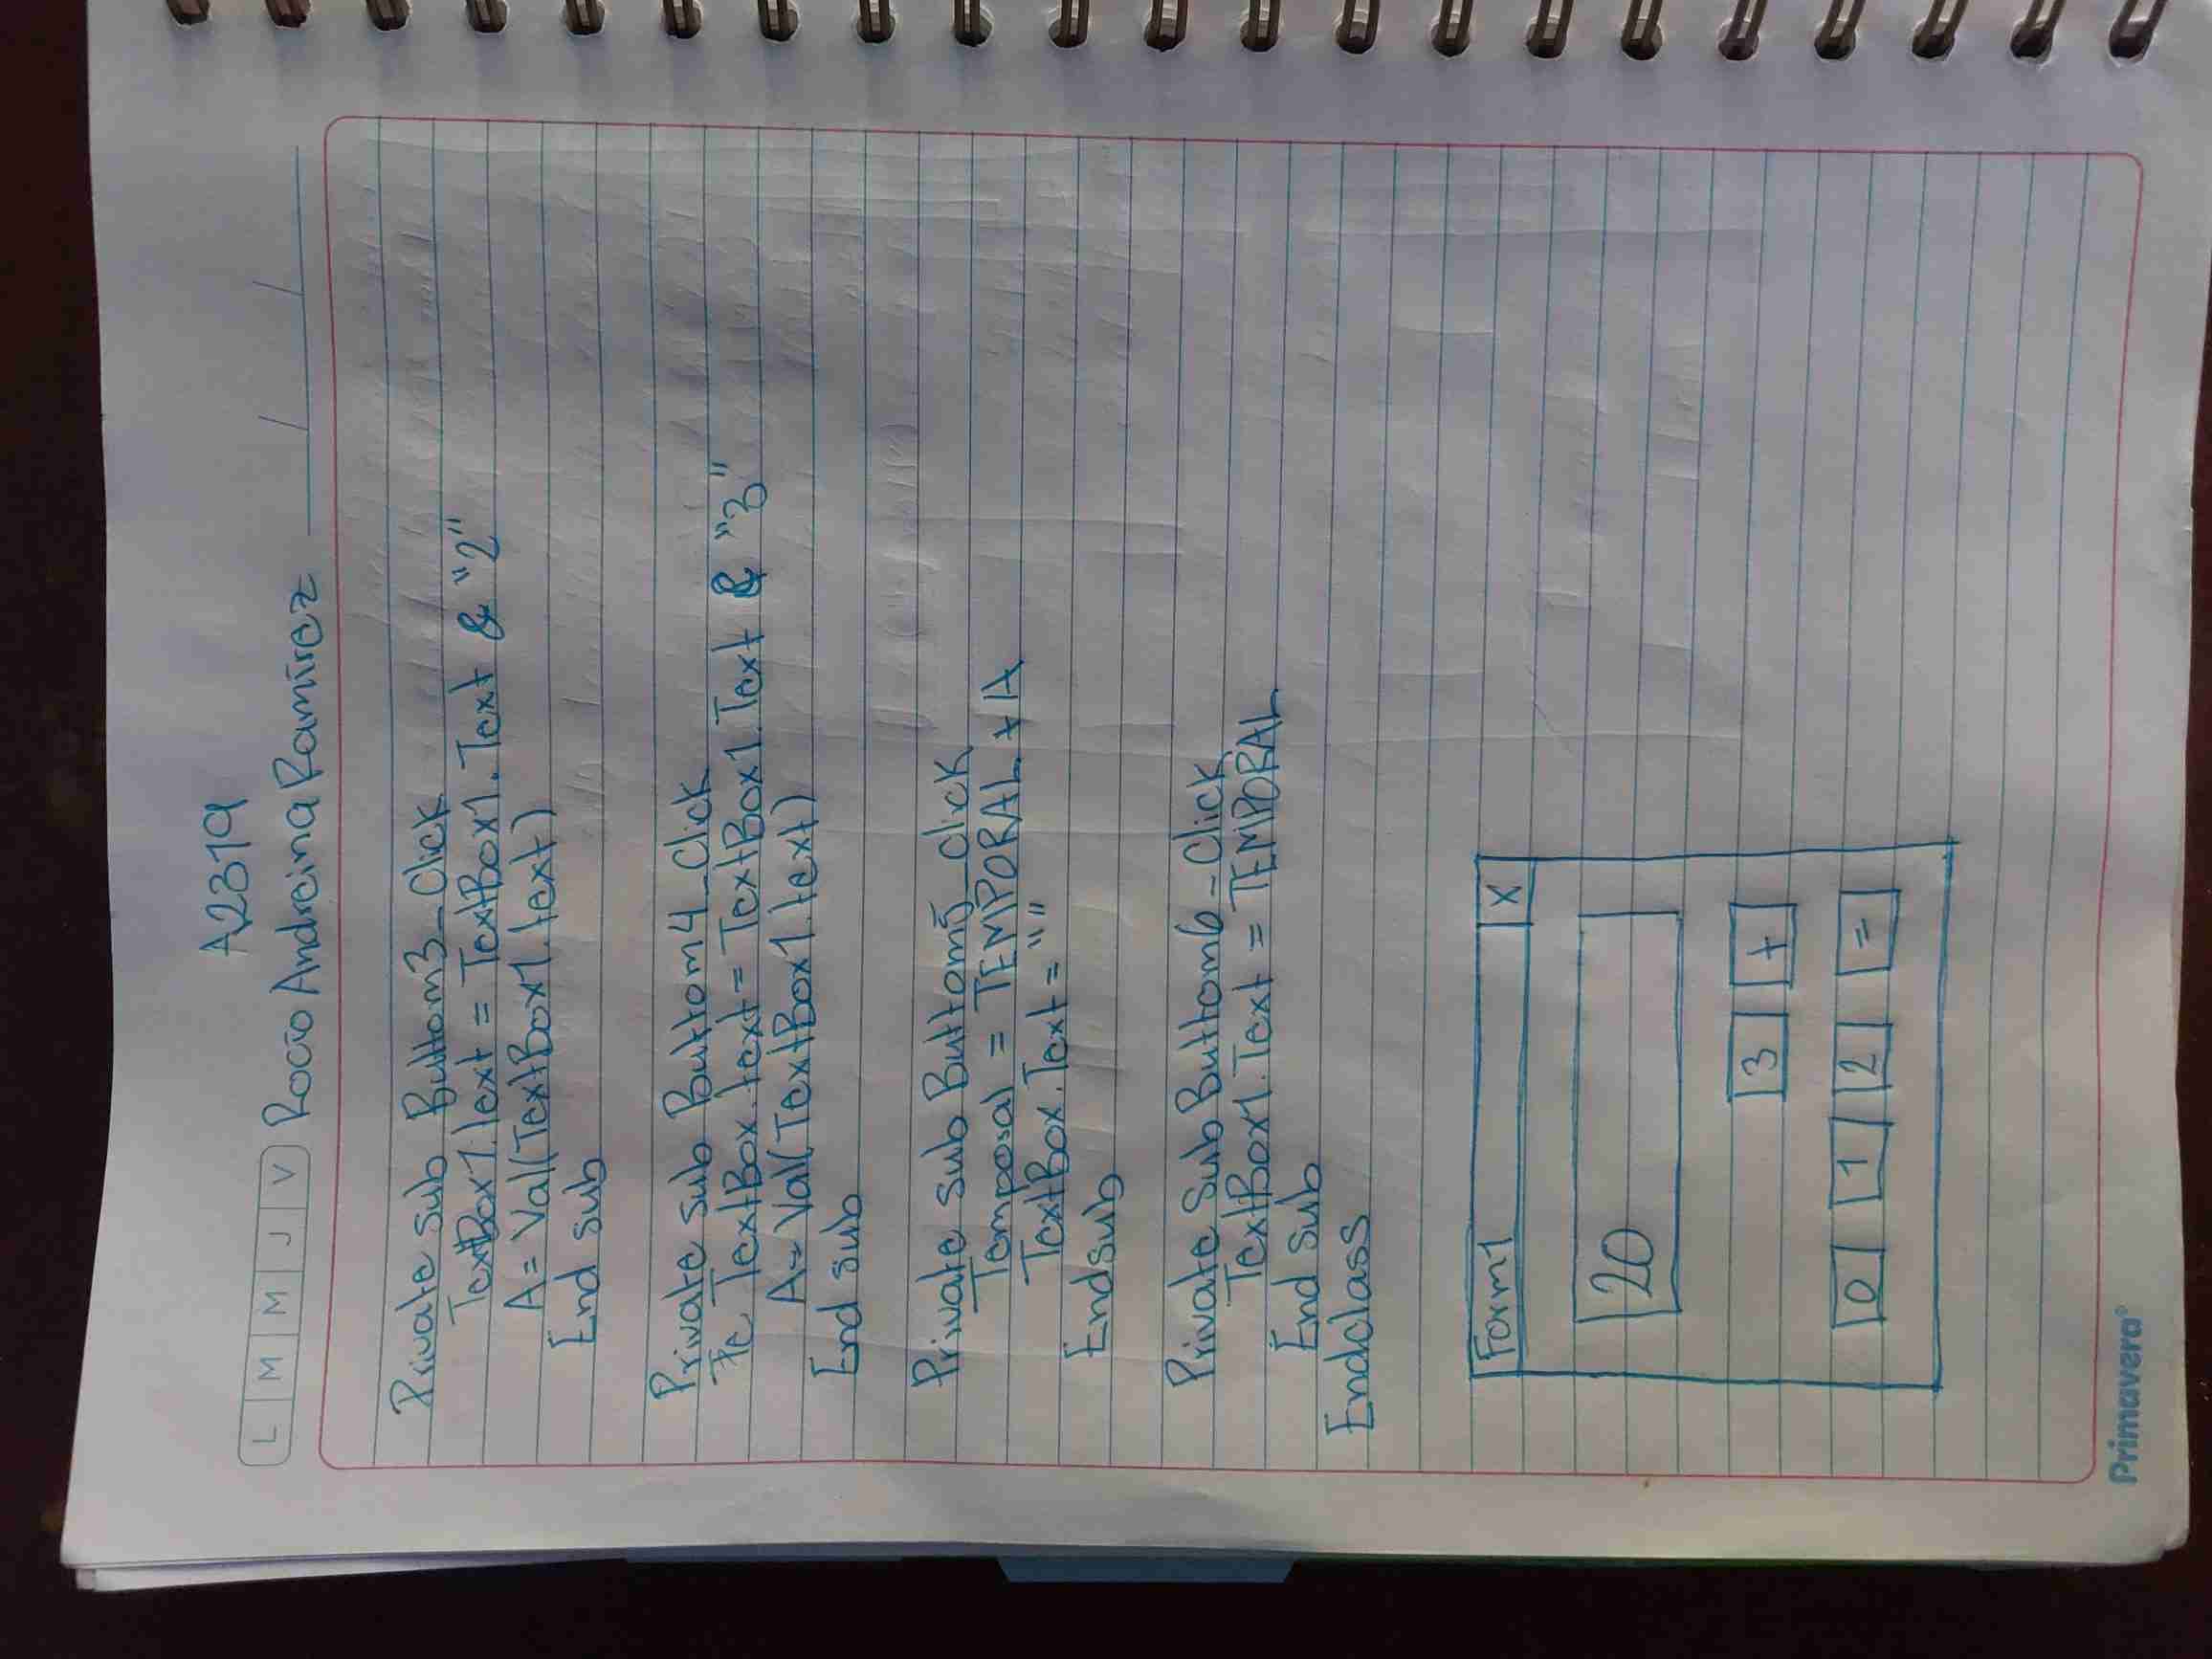 A2319
L M M J V Rocío Andreina Ramírez / /
Private sub Buttom3_Click
TextBox1.text = TextBox1.Text & "2"
A = Val(TextBox1.text)
End sub
Private sub Buttom4_Click
Te TextBox.text = TextBox1.Text & "3"
A = Val(TextBox1.text)
End sub
Private sub Buttom5_click
Temporal = TEMPORAL + A
TextBox.Text = ""
Endsub
Private Sub Buttom6_Click
TextBox1.Text = TEMPORAL
End sub
Endclass
Form1 X
20
3 +
0 1 2 =
Primavera